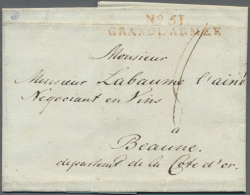 No. 51
GRANDE ARMÉE
Monsieur
Monsieur Labaume l'ainé
Negociant en Vins
a
Beaune.
departement de la Cote d'or.